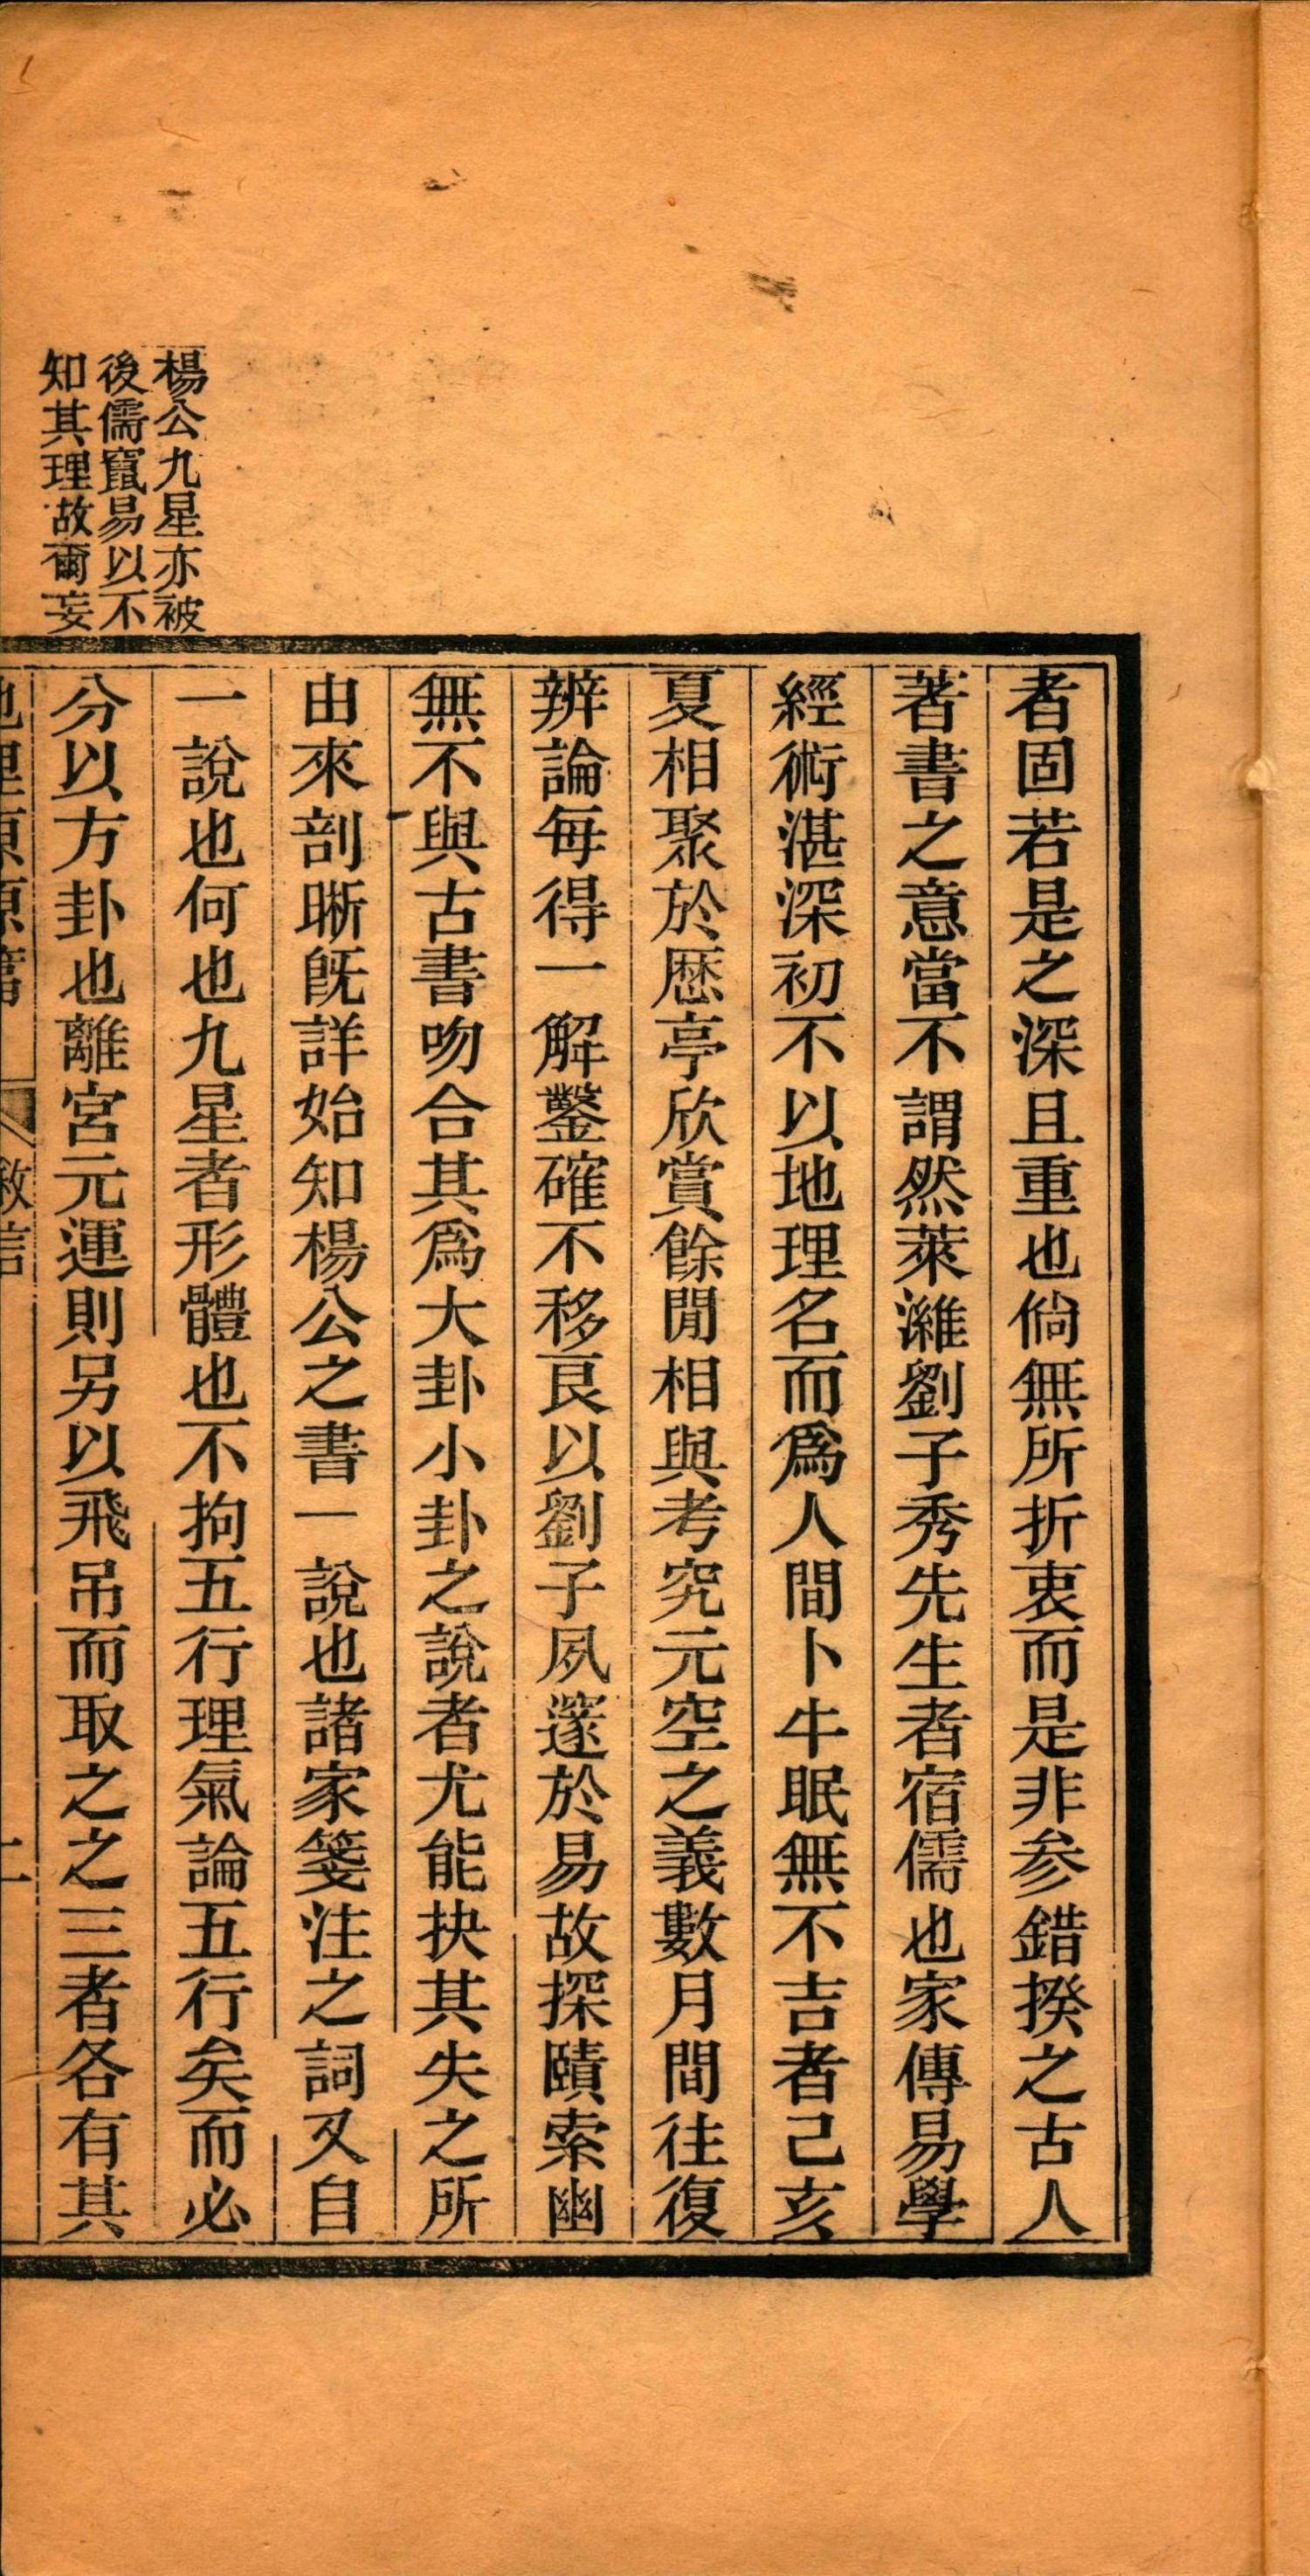 楊公九星亦被
後儒竄易以不
知其理故爾妄
者固若是之深且重也倘無所折衷而是非参錯揆之古人
著書之意當不謂然萊濰劉子秀先生者宿儒也家傳易學
經術湛深初不以地理名而爲人間卜牛眠無不吉者己亥
夏相聚於歷亭欣賞餘閒相與考究元空之義數月間往復
辨論每得一解鑿確不移良以劉子夙邃於易故探賾索幽
無不與古書吻合其爲大卦小卦之說者尤能抉其失之所
由來剖晰旣詳始知楊公之書一說也諸家箋注之詞又自
一說也何也九星者形體也不拘五行理氣論五行矣而必
分以方卦也離宮元運則另以飛吊而取之之三者各有其